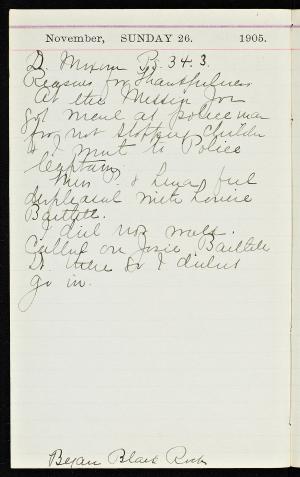 November, SUNDAY 26. 1905.
D. Mixson Ps. 34. 3.
Reasons for Thankfulness
At the Mission Joe
got mean at policeman
for not stopping children
& I went to Police
Captain.
Miss & Lena feel
displeased with Louise
Bartlett.
I did not walk.
Called on Josie Bartlett
Dr. there so I didn't
go in.
Began Black Rock